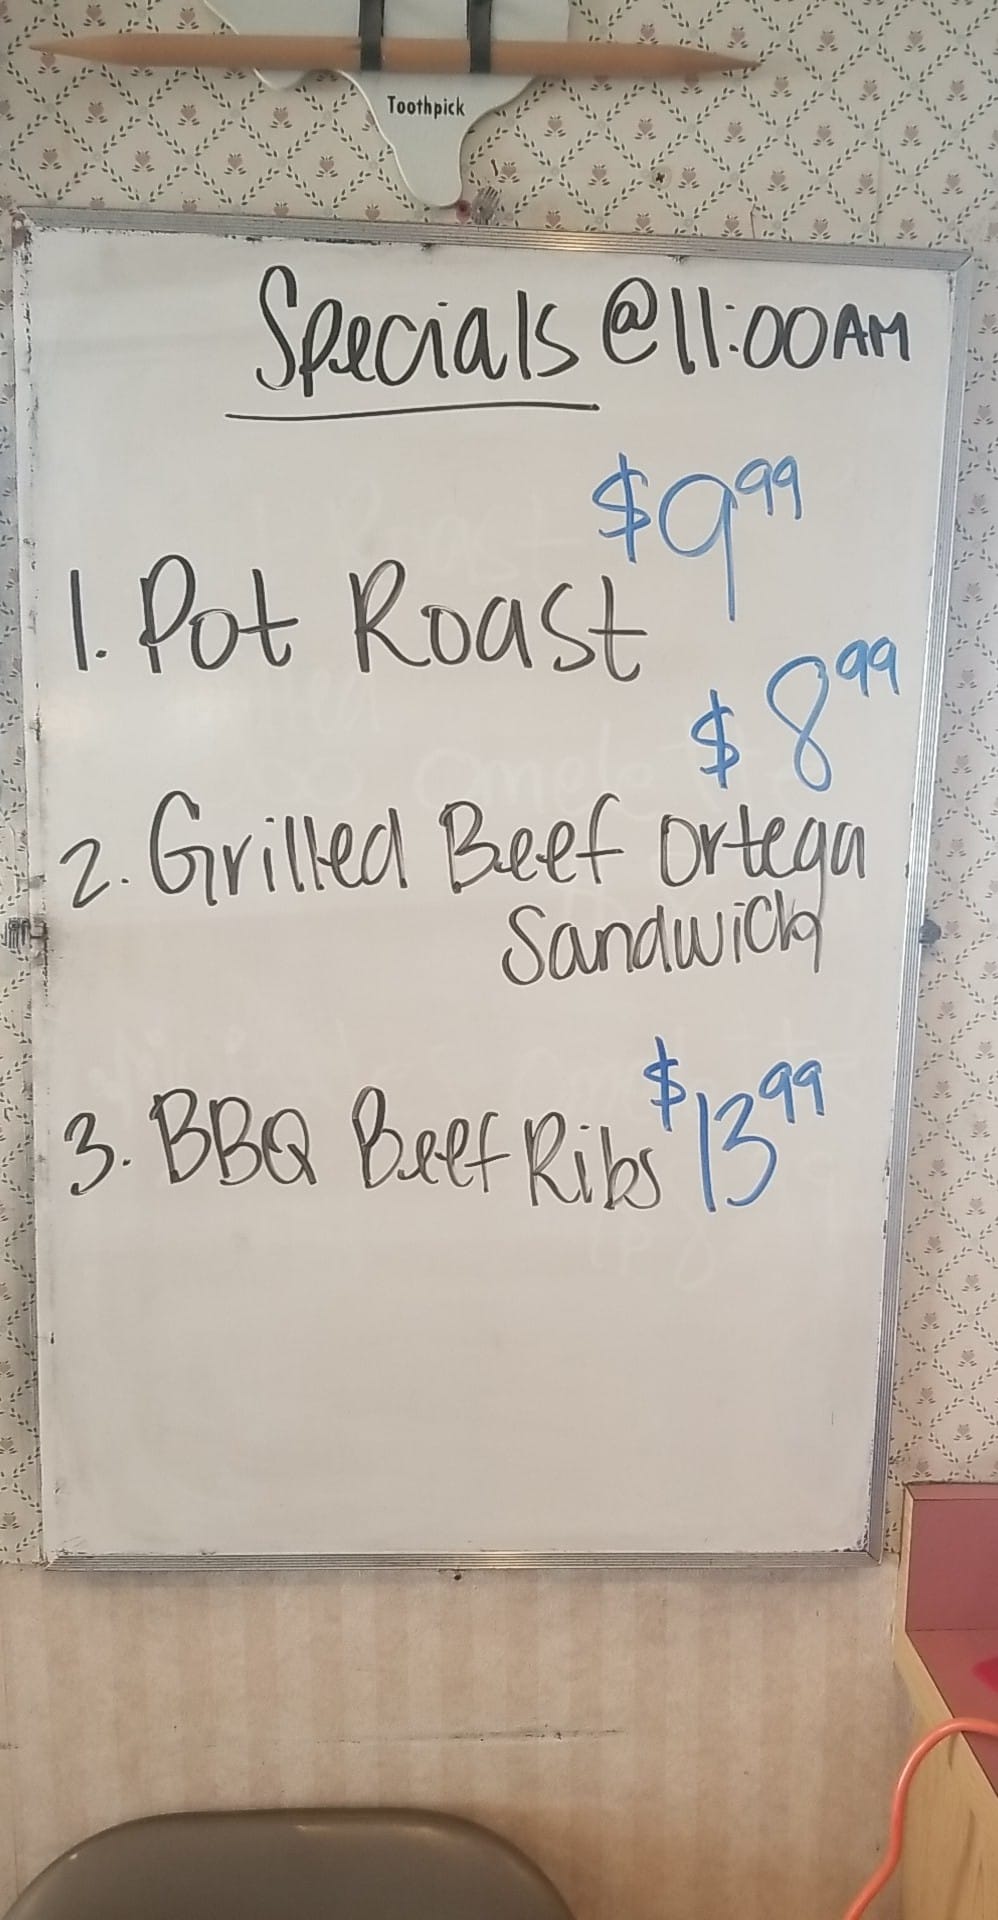 Toothpick
Specials @ 11:00 AM
$9.99
1. Pot Roast
$8.99
2. Grilled Beef Ortega
Sandwich
3. BBQ Beef Ribs $13.99